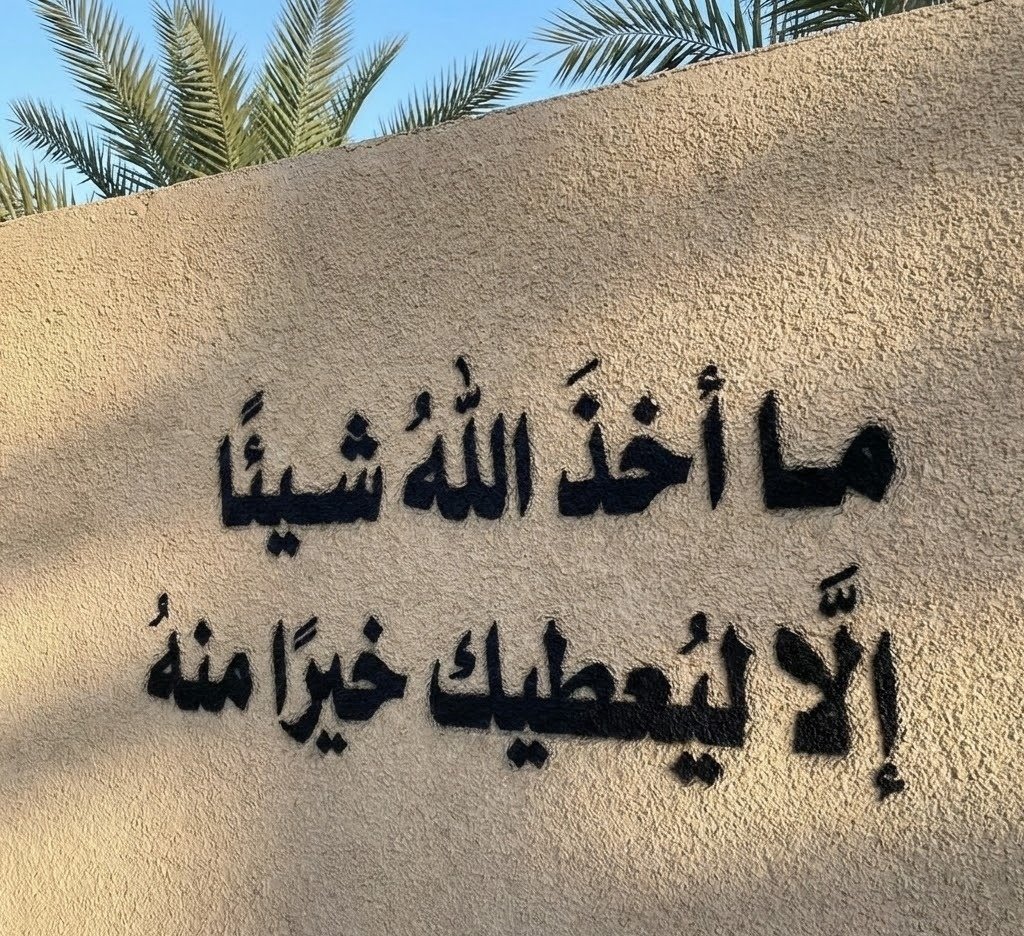 ما أخذَ اللّٰهُ شيئًا
إلَّا ليُعطيك خيرًا منهُ